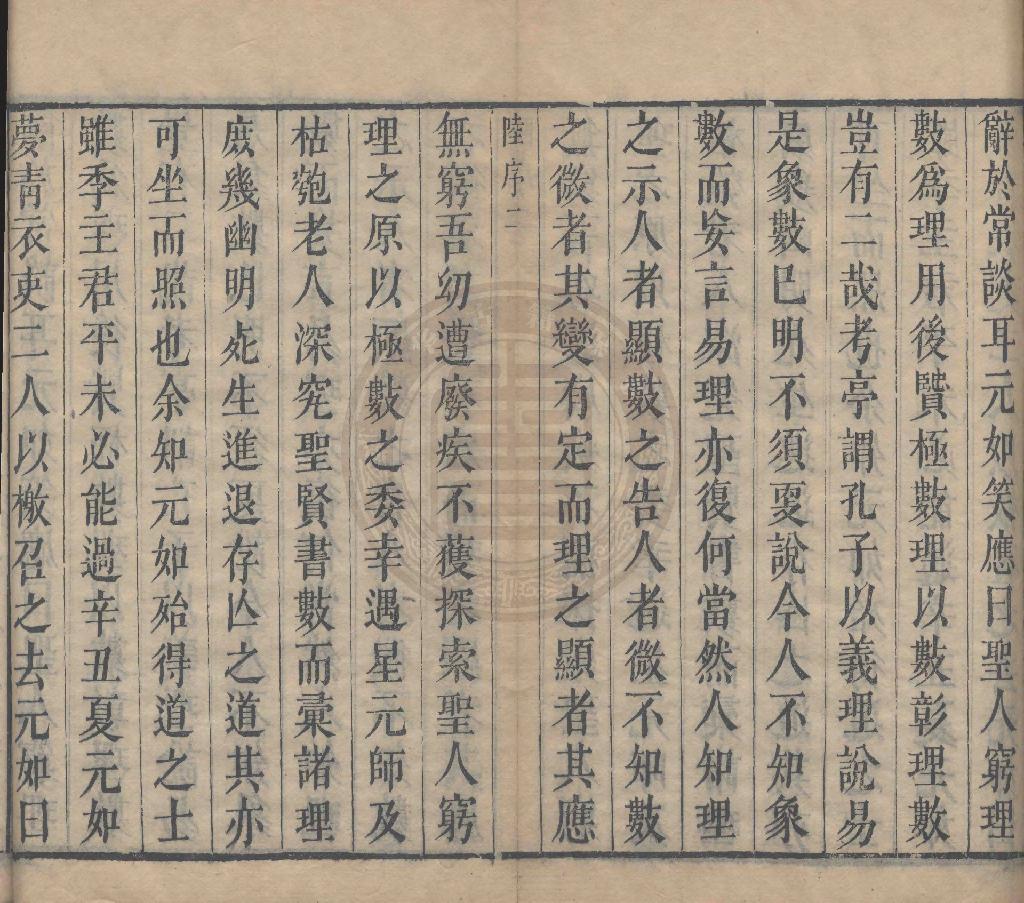 辭於常談耳元如笑應曰聖人窮理
數爲理用後贒極數理以數彰理數
豈有二哉考亭謂孔子以義理說易
是象數巳明不須更說今人不知象
數而妄言易理亦復何當然人知理
之示人者顯數之告人者微不知數
之微者其變有定而理之顯者其應
陸序二
無窮吾幼遭廢疾不獲探索聖人窮
理之原以極數之委幸遇星元師及
枯匏老人深究聖賢書數而彙諸理
庶幾幽明死生進退存亾之道其亦
可坐而照也余知元如殆得道之士
雖季主君平未必能過辛丑夏元如
夢青衣吏二人以檄召之去元如曰